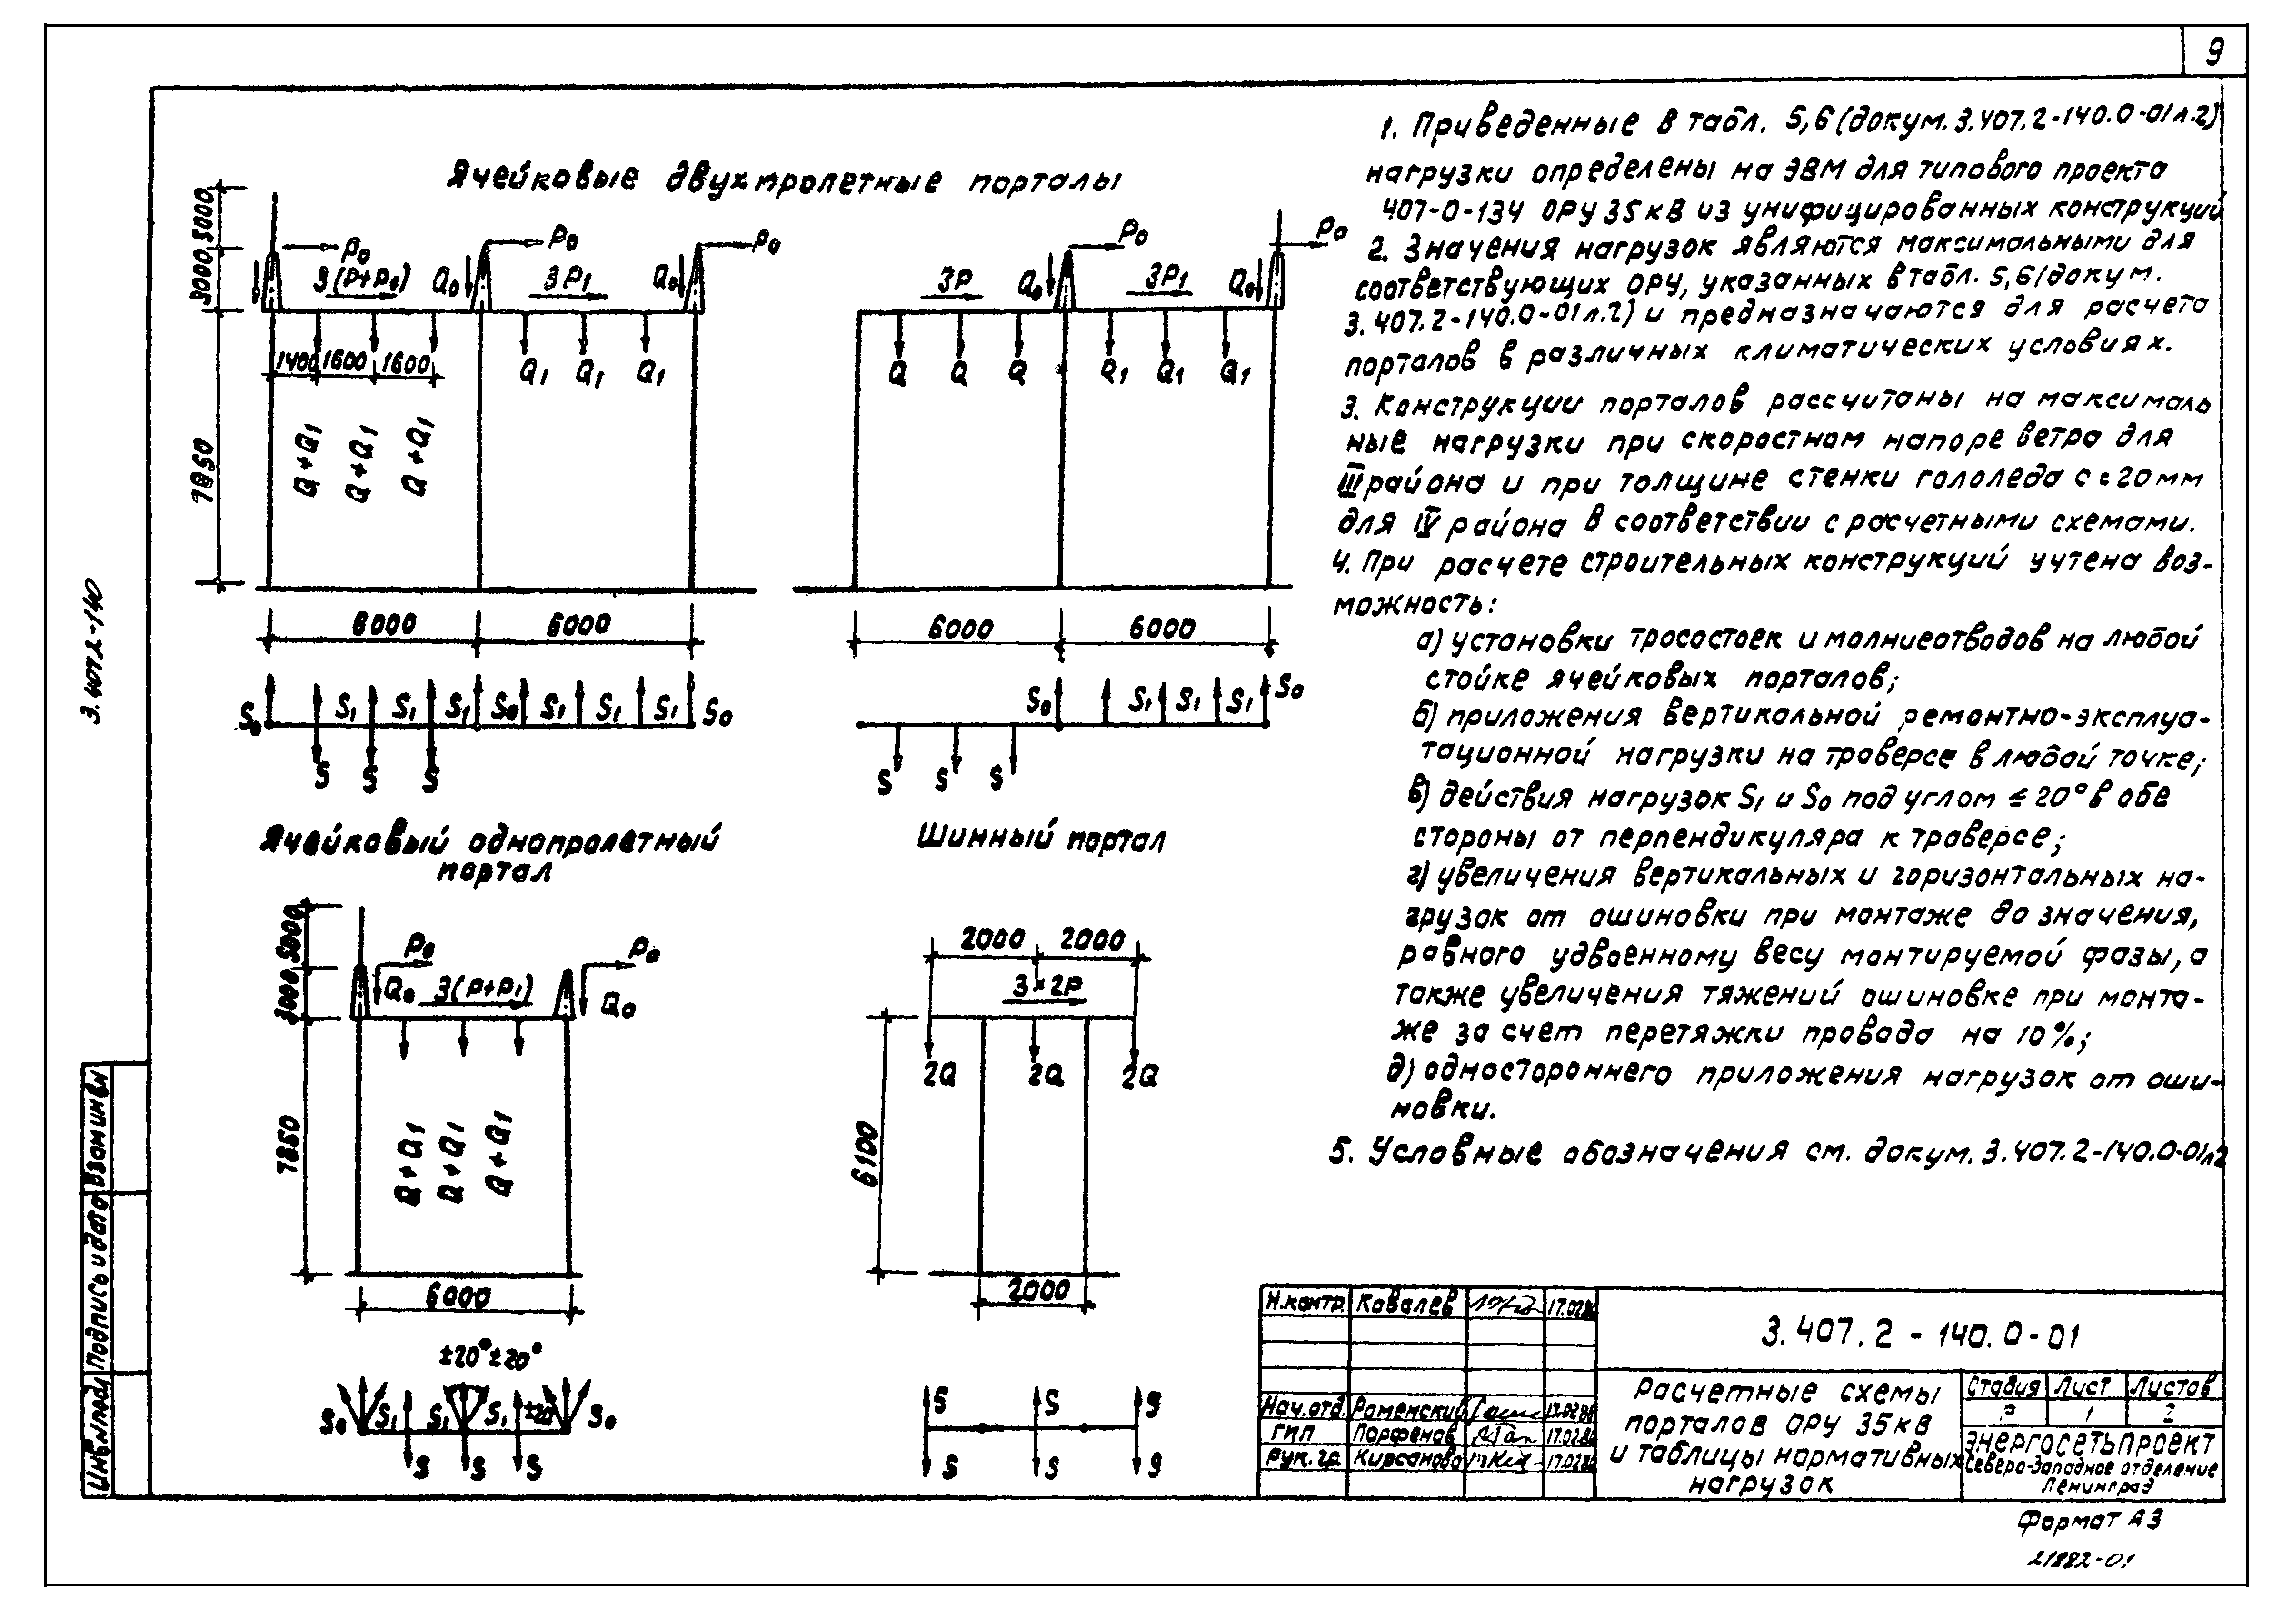 9
Ячейковые двухпролетные порталы
3000 5000
P0
P0
P0
3(P+P0)
Q0
3P1
Q0
1400 1600 1600
Q1 Q1 Q1
Q+Q1 Q+Q1 Q+Q1
7850
6000 6000
S0 S1 S1 S1 S0 S1 S1 S1 S0
S S S
P0
P0
3P
Q0
3P1
Q0
Q Q Q Q1 Q1 Q1
6000 6000
S0 S1 S1 S1 S0
S S S
Ячейковый однопролетный
портал
3000 5000
P0
P0
Q0 3(P+P1)
Q0
Q+Q1 Q+Q1 Q+Q1
7850
6000
±20° ±20°
S0 S1 S1 S1 ±20 S0
S S S
Шинный портал
2000 2000
3×2P
2Q 2Q 2Q
6100
2000
S S S
S S S
1. Приведенные в табл. 5,6 (докум. 3.407.2-140.0-01л.2)
нагрузки определены на ЭВМ для типового проекта
407-0-134 ОРУ 35кВ из унифицированных конструкций
2. Значения нагрузок являются максимальными для
соответствующих ОРУ, указанных в табл. 5,6 (докум.
3.407.2-140.0-01л.2) и предназначаются для расчета
порталов в различных климатических условиях.
3. Конструкции порталов рассчитаны на максималь
ные нагрузки при скоростном напоре ветра для
III района и при толщине стенки гололеда с=20мм
для IV района в соответствии с расчетными схемами.
4. При расчете строительных конструкций учтена воз-
можность:
а) установки тросостоек и молниеотводов на любой
стойке ячейковых порталов;
б) приложения вертикальной ремонтно-эксплуа-
тационной нагрузки на траверсе в любой точке;
в) действия нагрузок S1 и S0 под углом ≤ 20° в обе
стороны от перпендикуляра к траверсе;
г) увеличения вертикальных и горизонтальных на-
грузок от ошиновки при монтаже до значения,
равного удвоенному весу монтируемой фазы, а
также увеличения тяжений ошиновке при монта-
же за счет перетяжки провода на 10%;
д) одностороннего приложения нагрузок от оши-
новки.
5. Условные обозначения см. докум. 3.407.2-140.0-01л2
3.407.2-140
Инв.№подл Подпись и дата Взам инв№
Н.контр. Ковалев 17.02.86
Нач.отд. Роменский 17.02.86
ГИП Парфенов 17.02.86
Рук.гр. Кирсанова 17.02.86
3.407.2-140.0-01
Расчетные схемы
порталов ОРУ 35кВ
и таблицы нормативных
нагрузок
Стадия Лист Листов
Р 1 2
Энергосетьпроект
Северо-Западное отделение
Ленинград
Формат А3
21882-01